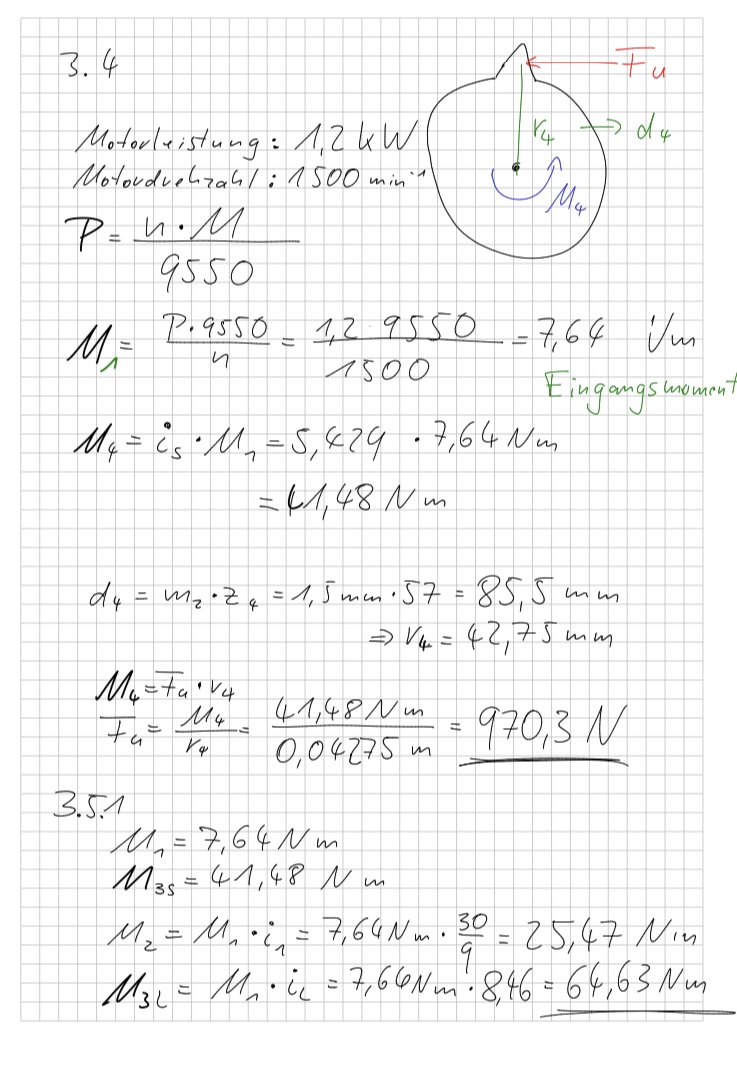 3.4
F_u
r_4 → d_4
M_4
Motorleistung: 1,2 kW
Motordrehzahl: 1500 min⁻¹
P = n · M / 9550
M_1 = P · 9550 / n = 1,2 · 9550 / 1500 = 7,64 Nm
Eingangsmoment
M_4 = i_s · M_1 = 5,429 · 7,64 Nm
= 41,48 Nm
d_4 = m_2 · z_4 = 1,5 mm · 57 = 85,5 mm
⇒ r_4 = 42,75 mm
M_4 = F_u · r_4
F_u = M_4 / r_4 = 41,48 Nm / 0,04275 m = 970,3 N
3.5.1
M_1 = 7,64 Nm
M_3S = 41,48 Nm
M_2 = M_1 · i_1 = 7,64 Nm · 30/9 = 25,47 Nm
M_3L = M_1 · i_L = 7,64 Nm · 8,46 = 64,63 Nm